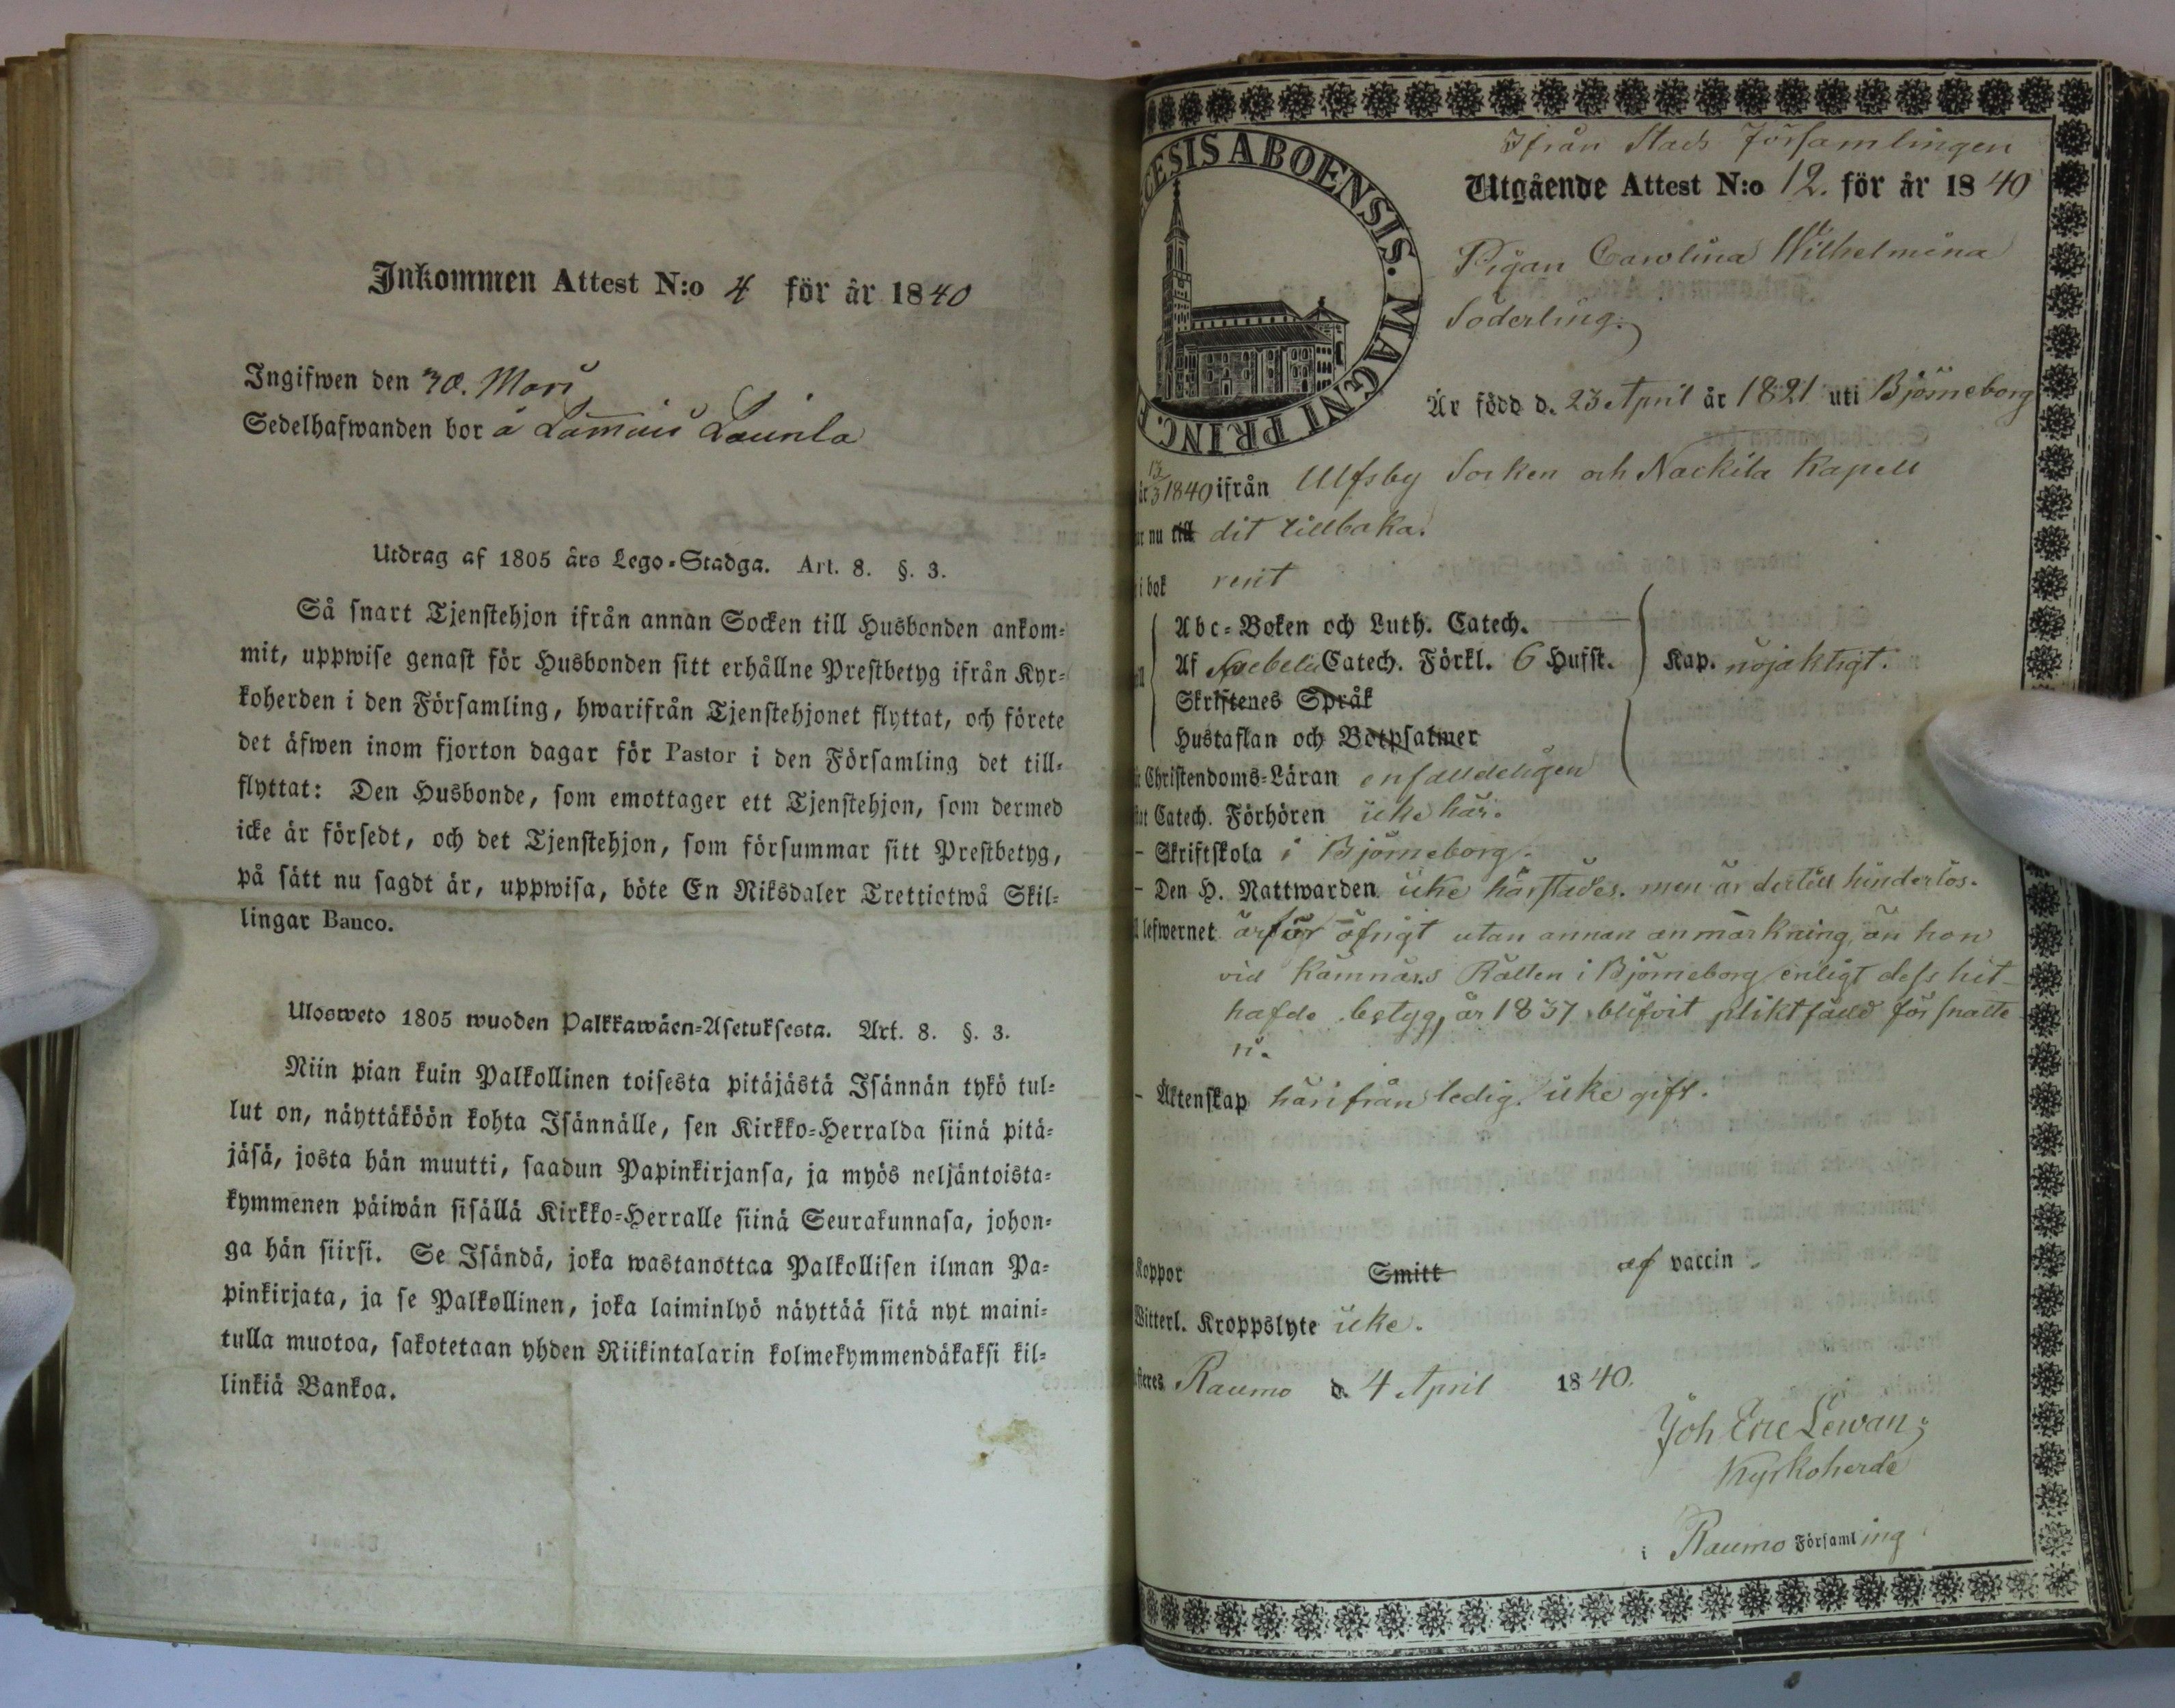 Inkommen Attest N:o 4 för år 1840
Ingifwen den 30. Mars
Sedelhafwanden bor å Lammais Launla
Utdrag af 1805 års Lego-Stadga. Art. 8. §. 3.
Så snart Tjenstehjon ifrån annan Socken till Husbonden ankom-
mit, uppwise genast för Husbonden sitt erhållne Prestbetyg ifrån Kyr-
koherden i den Församling, hwarifrån Tjenstehjonet flyttat, och förete
det äfwen inom fjorton dagar för Pastor i den Församling det till-
flyttat: Den Husbonde, som emottager ett Tjenstehjon, som dermed
icke är försedt, och det Tjenstehjon, som försummar sitt Prestbetyg,
på sätt nu sagdt är, uppwisa, böte En Riksdaler Trettiotwå Skil-
lingar Banco.
Ulosweto 1805 wuoden Palkkawäen-Asetuksesta. Art. 8. §. 3.
Niin pian kuin Palkollinen toisesta pitäjästä Isännän tykö tul-
lut on, näyttäköön kohta Isännälle, sen Kirkko-Herralda siinä pitä-
jäsä, josta hän muutti, saadun Papinkirjansa, ja myös neljäntoista-
kymmenen päiwän sisällä Kirkko-Herralle siinä Seurakunnasa, johon-
ga hän siirsi. Se Isändä, joka wastanottaa Palkollisen ilman Pa-
pinkirjata, ja se Palkollinen, joka laiminlyö näyttää sitä nyt maini-
tulla muotoa, sakotetaan yhden Riikintalarin kolmekymmendäkaksi kil-
linkiä Bankoa.
CESIS ABOENSIS. MAGNI PRINC. F
Ifrån Stads Församlingen
Utgående Attest N:o 12. för år 1840
Pigan Carolina Wilhelmina
Söderling.
Är född d. 23 April år 1821 uti Björneborg
år 13/3 1840 ifrån Ulfsby Socken och Nackila Kapell
ar nu till dit tillbaka.
i bok rent
Abc-Boken och Luth. Catech.
Af Svebelii Catech. Förkl. 6 Hufst. Kap. nöjaktigt.
Skriftenes Språk
Hustaflan och Botpsalmer
Christendoms-Läran enfalldeligen
Catech. Förhören icke här.
- Skriftskola i Björneborg.
- Den H. Nattwarden icke härstädes. men är dertill hinderlös.
lefwernet är för öfrigt utan annan anmärkning, än hon
vid Kämnärs Rätten i Björneborg enligt dess hit-
hafde betyg, år 1837 blifvit pliktfälld för snatte
ri.
- Äktenskap härifrån ledig. icke gift.
Koppor Smitt af vaccin
Witterl. Kroppslyte icke.
Raumo d. 4 April 1840.
Joh Eric Lewan;
Kyrkoherde
i Raumo Församling